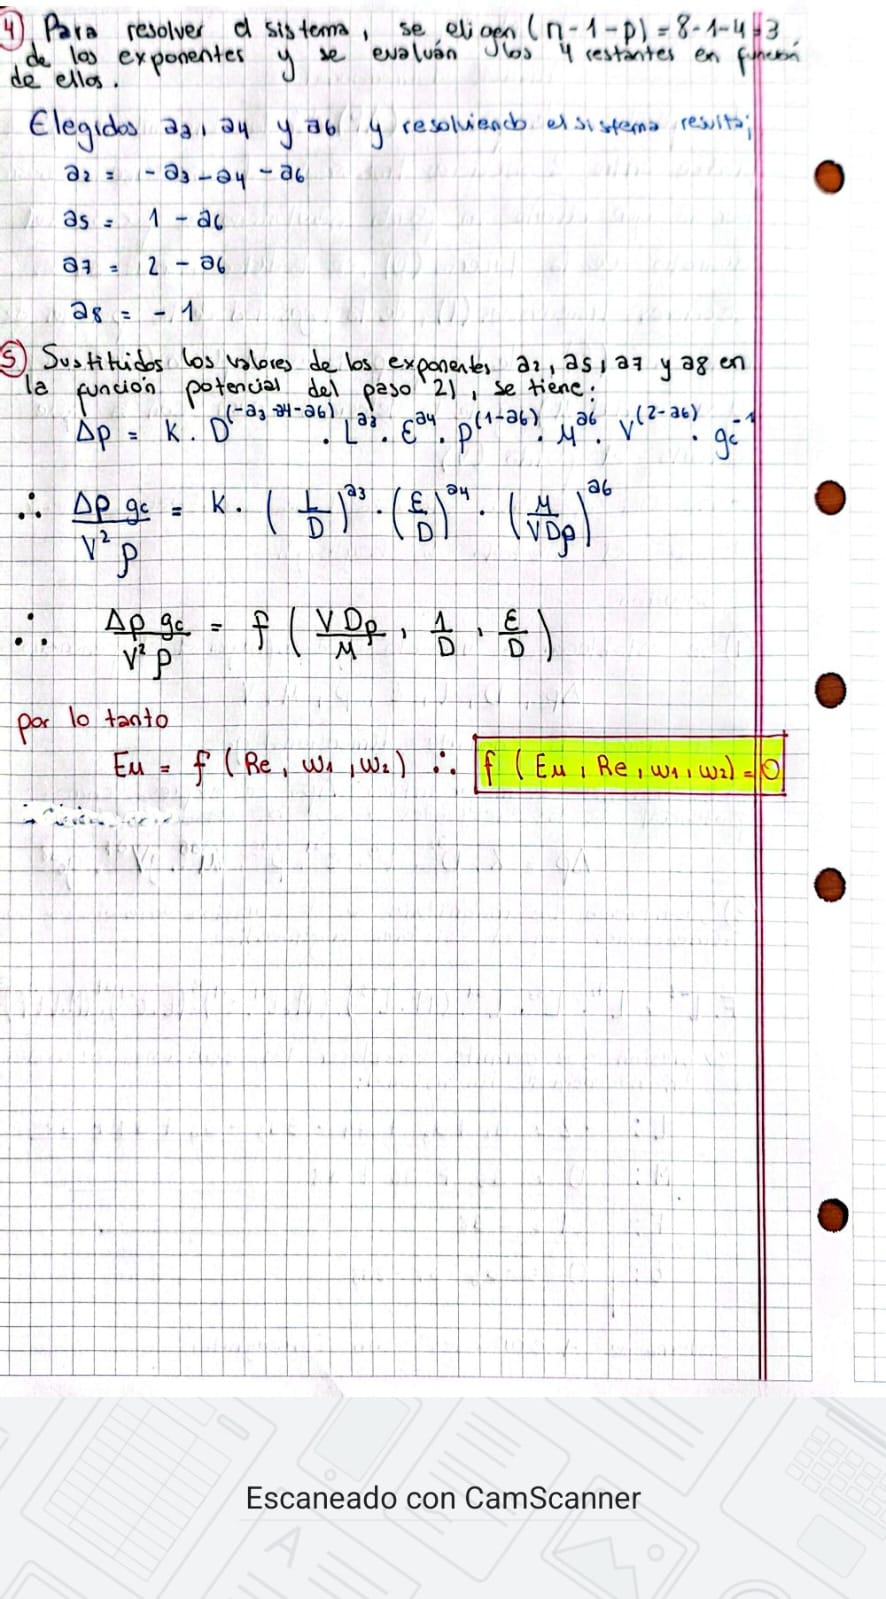 4) Para resolver el sistema, se eligen (n-1-p) = 8-1-4=3
de los exponentes y se evalúan los 4 restantes en función
de ellos.
Elegidos a3, a4 y a6 y resolviendo el sistema resulta;
a2 = -a3-a4-a6
a5 = 1 - a6
a7 = 2 - a6
a8 = -1
5) Sustituidos los valores de los exponentes a2, a5, a7 y a8 en
la función potencial del paso 2), se tiene:
Δp = K. D^(-a3-a4-a6) . L^a3 . ε^a4 . ρ^(1-a6) . μ^a6 . V^(2-a6) . gc^-1
∴ Δp gc / V² ρ = K . (L/D)^a3 . (ε/D)^a4 . (μ/VDρ)^a6
∴ Δp gc / V² ρ = f (VDρ/μ, 1/D, ε/D)
por lo tanto
Eu = f (Re, w1, w2) ∴ f (Eu, Re, w1, w2) = 0
Escaneado con CamScanner